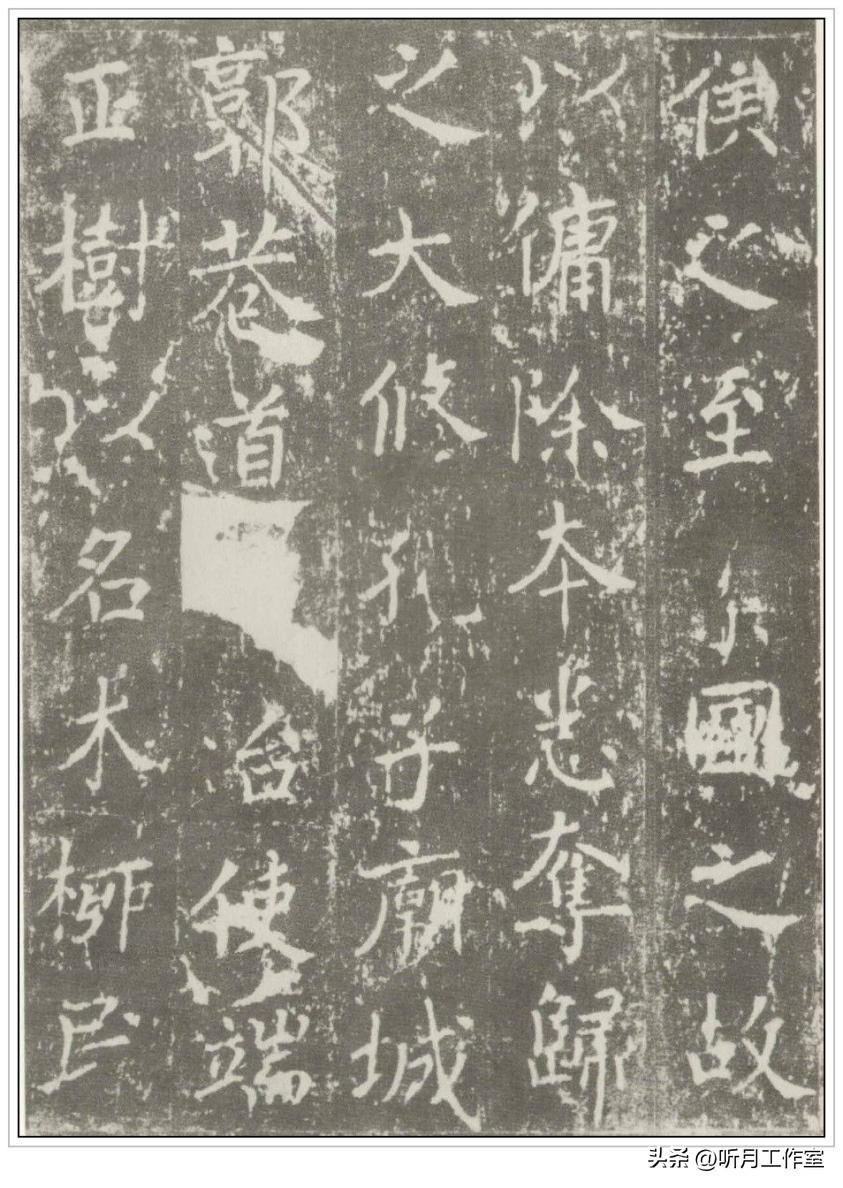 侯之至國之故
以傭除本悉奪歸
之大修孔子廟城
郭巷道使端
正樹以名木柳民
头条 @听月工作室